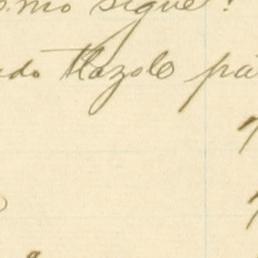 omo sigue:
ado tlazole pa